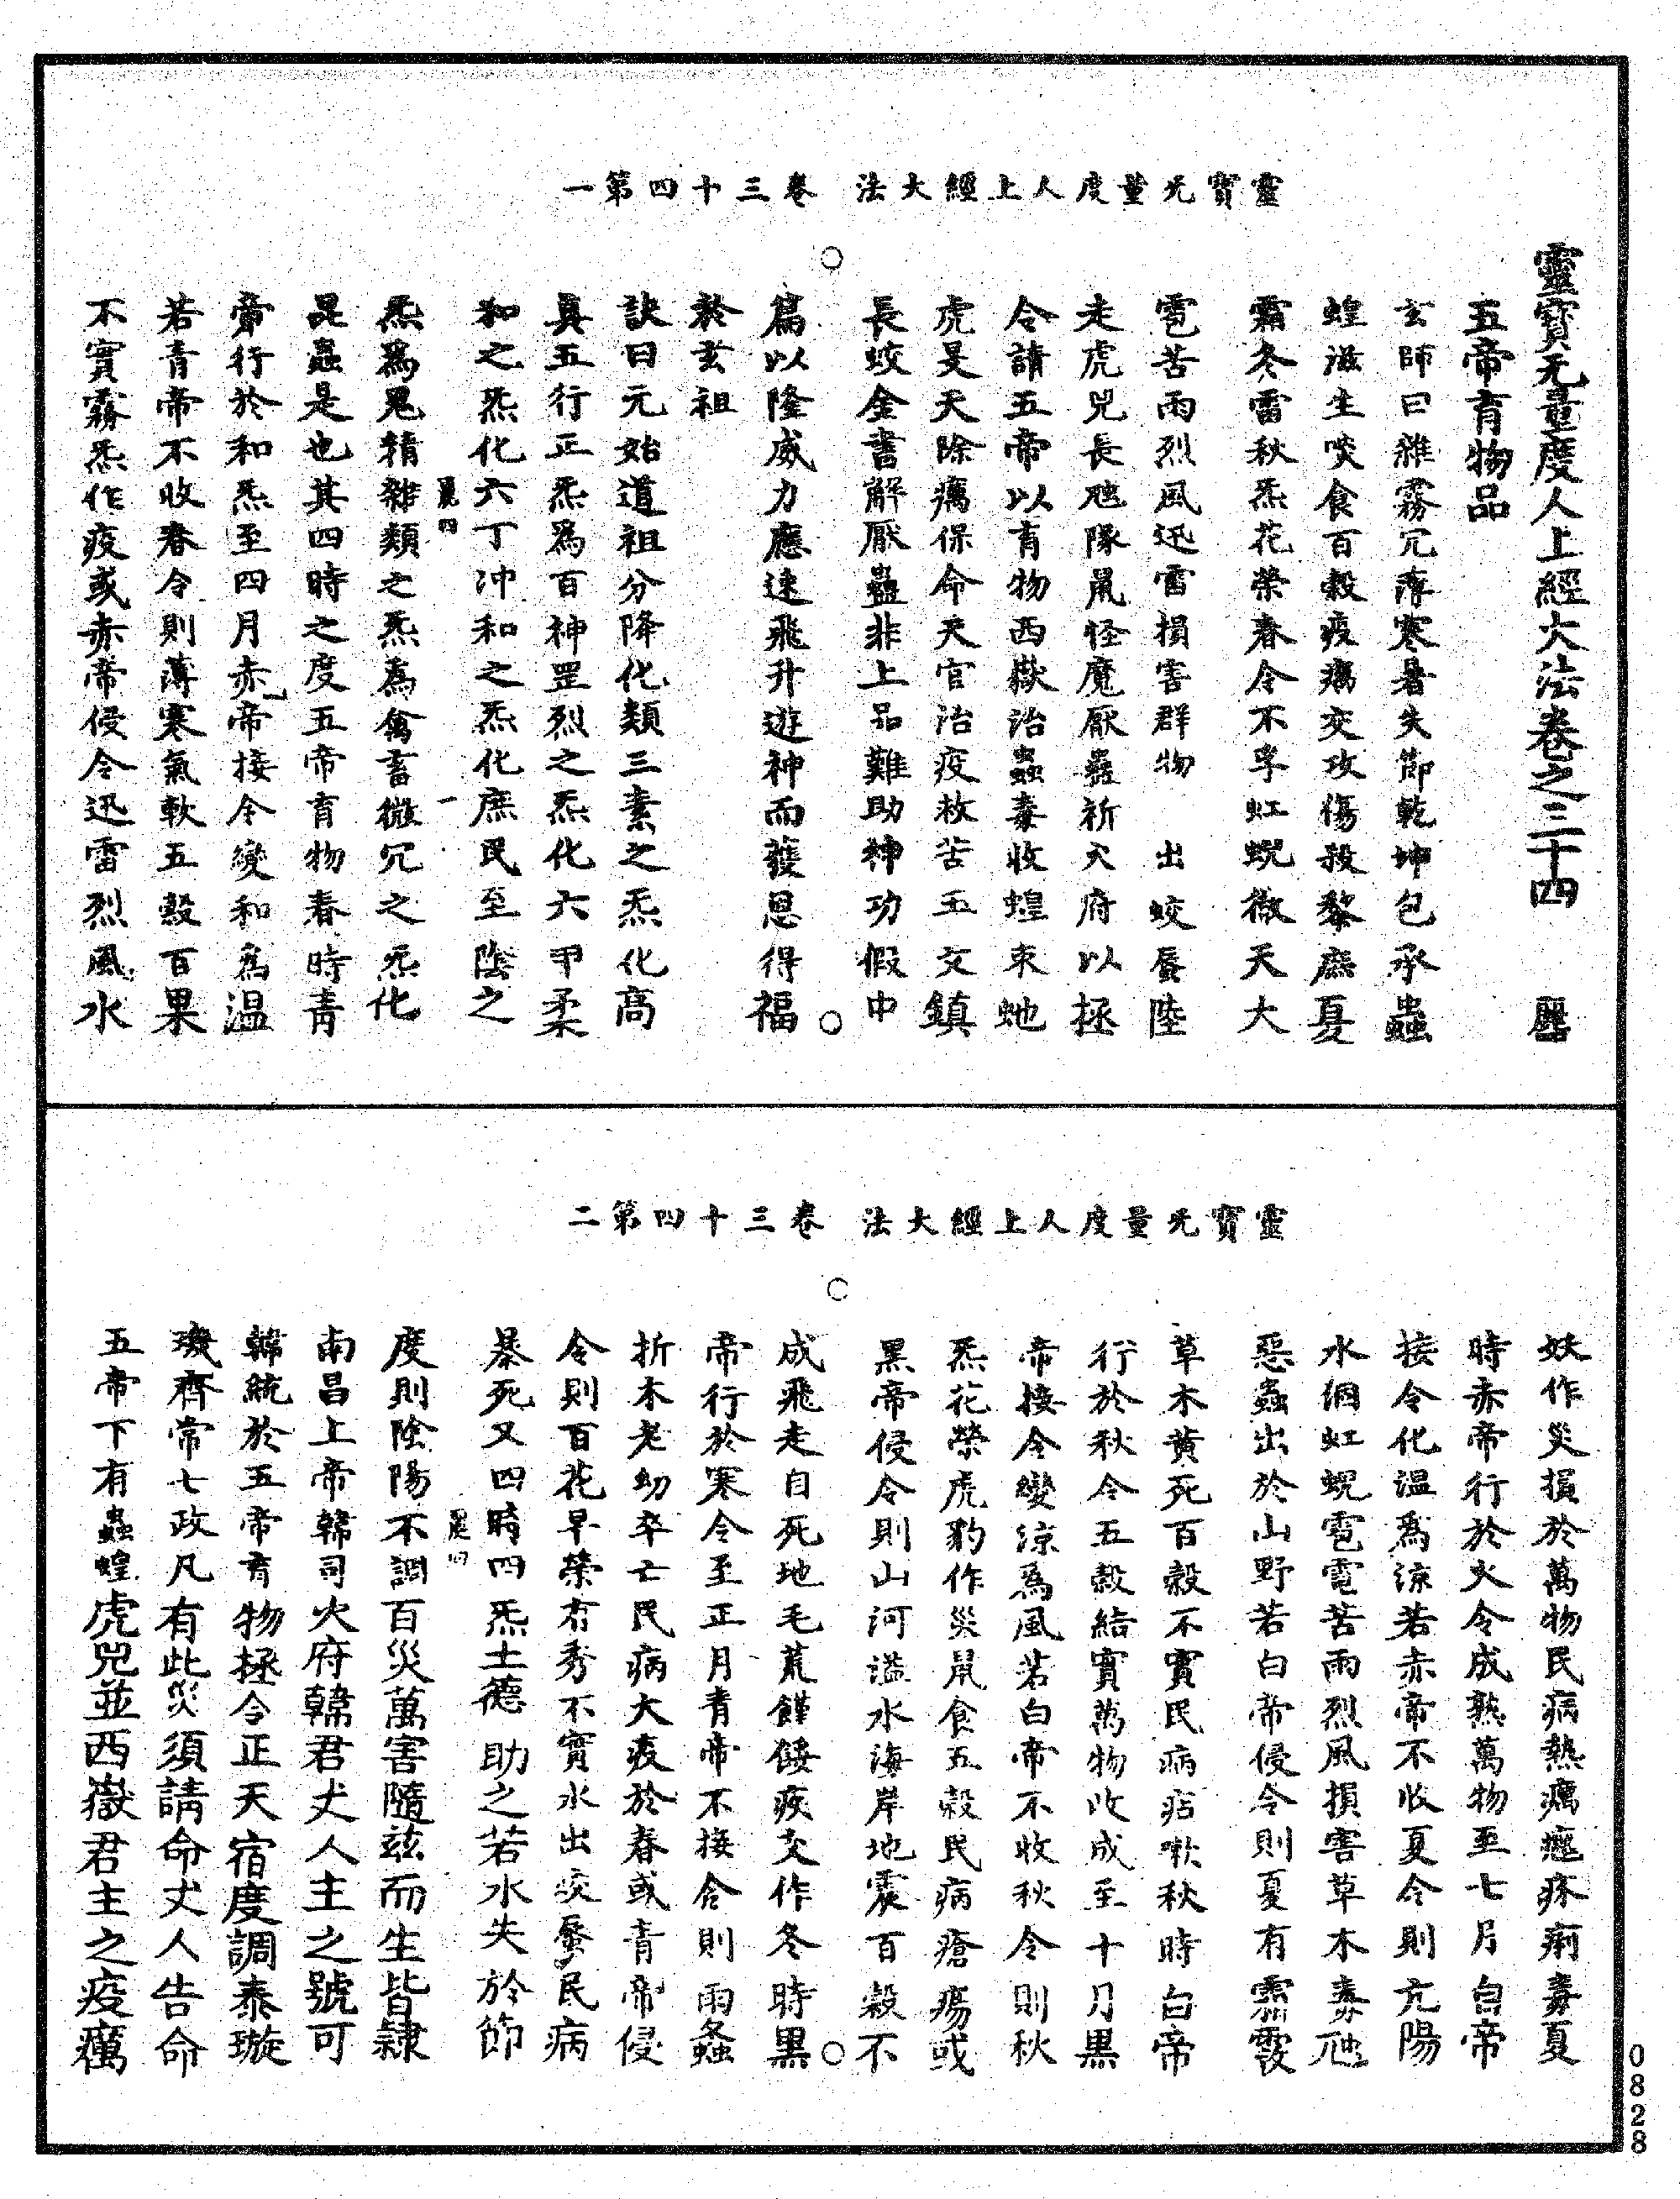 靈寶无量度人上經大法 卷三十四第一
靈寶无量度人上經大法卷之三十四
五帝育物品
玄師曰雜霧冗薄寒暑失節乾坤包承蟲
蝗滋生啖食百穀疫癘交攻傷殺黎庶夏
霜冬雷秋炁花榮春令不孚虹蜺微天大
雹苦雨烈風迅雷損害群物 出蛟蜃陸
走虎兕長虺隊鼠怪魔厭蠱祈火府以拯
令請五帝以育物西嶽治蟲毒收蝗束虵
虎旻天除癘保命天官治疫救苦玉文鎮
長蛟金書解厭蠱非上品難助神功假中
篇以隆威力應速飛升遊神而蒦恩得福
於玄祖
訣曰元始道祖分降化類三素之炁化高
真五行正炁爲百神罡烈之炁化六甲柔
和之炁化六丁冲和之炁化庶民至陰之
炁爲鬼精雜類之炁爲禽畜微冗之炁化
昆蟲是也其四時之度五帝育物春時青
帝行於和炁至四月赤帝接令變和爲温
若青帝不收春令則薄寒氣軟五穀百果
不實霧炁作疫或赤帝侵令迅雷烈風水
靈寶无量度人上經大法 卷三十四第二
妖作災損於萬物民病熱癘瘧疥痢毒夏
時赤帝行於火令成熟萬物至七月白帝
接令化温爲涼若赤帝不收夏令則亢陽
水涸虹蜺雹電苦雨烈風損害草木毒虺
惡蟲出於山野若白帝侵令則夏有霜雪
草木黄死百穀不實民病痁嗽秋時白帝
行於秋令五穀結實萬物收成至十月黑
帝接令變涼爲風若白帝不收秋令則秋
炁花榮虎豹作災鼠食五穀民病瘡瘍或
黑帝侵令則山河溢水海岸地震百穀不
成飛走自死地毛荒饉餧疾交作冬時黑
帝行於寒令至正月青帝不接令則雨螽
折木老幼卒亡民病大疫於春或青帝侵
令則百花早榮有秀不實水出蛟蜃民病
暴死又四時四炁土德助之若水失於節
度則陰陽不調百災萬害隨兹而生皆隸
南昌上帝韓司火府韓君丈人主之號可
韓統於五帝育物拯令正天宿度調泰璇
璣齊常七政凡有此災須請命丈人告命
五帝下有蟲蝗虎兕並西嶽君主之疫癘
0828